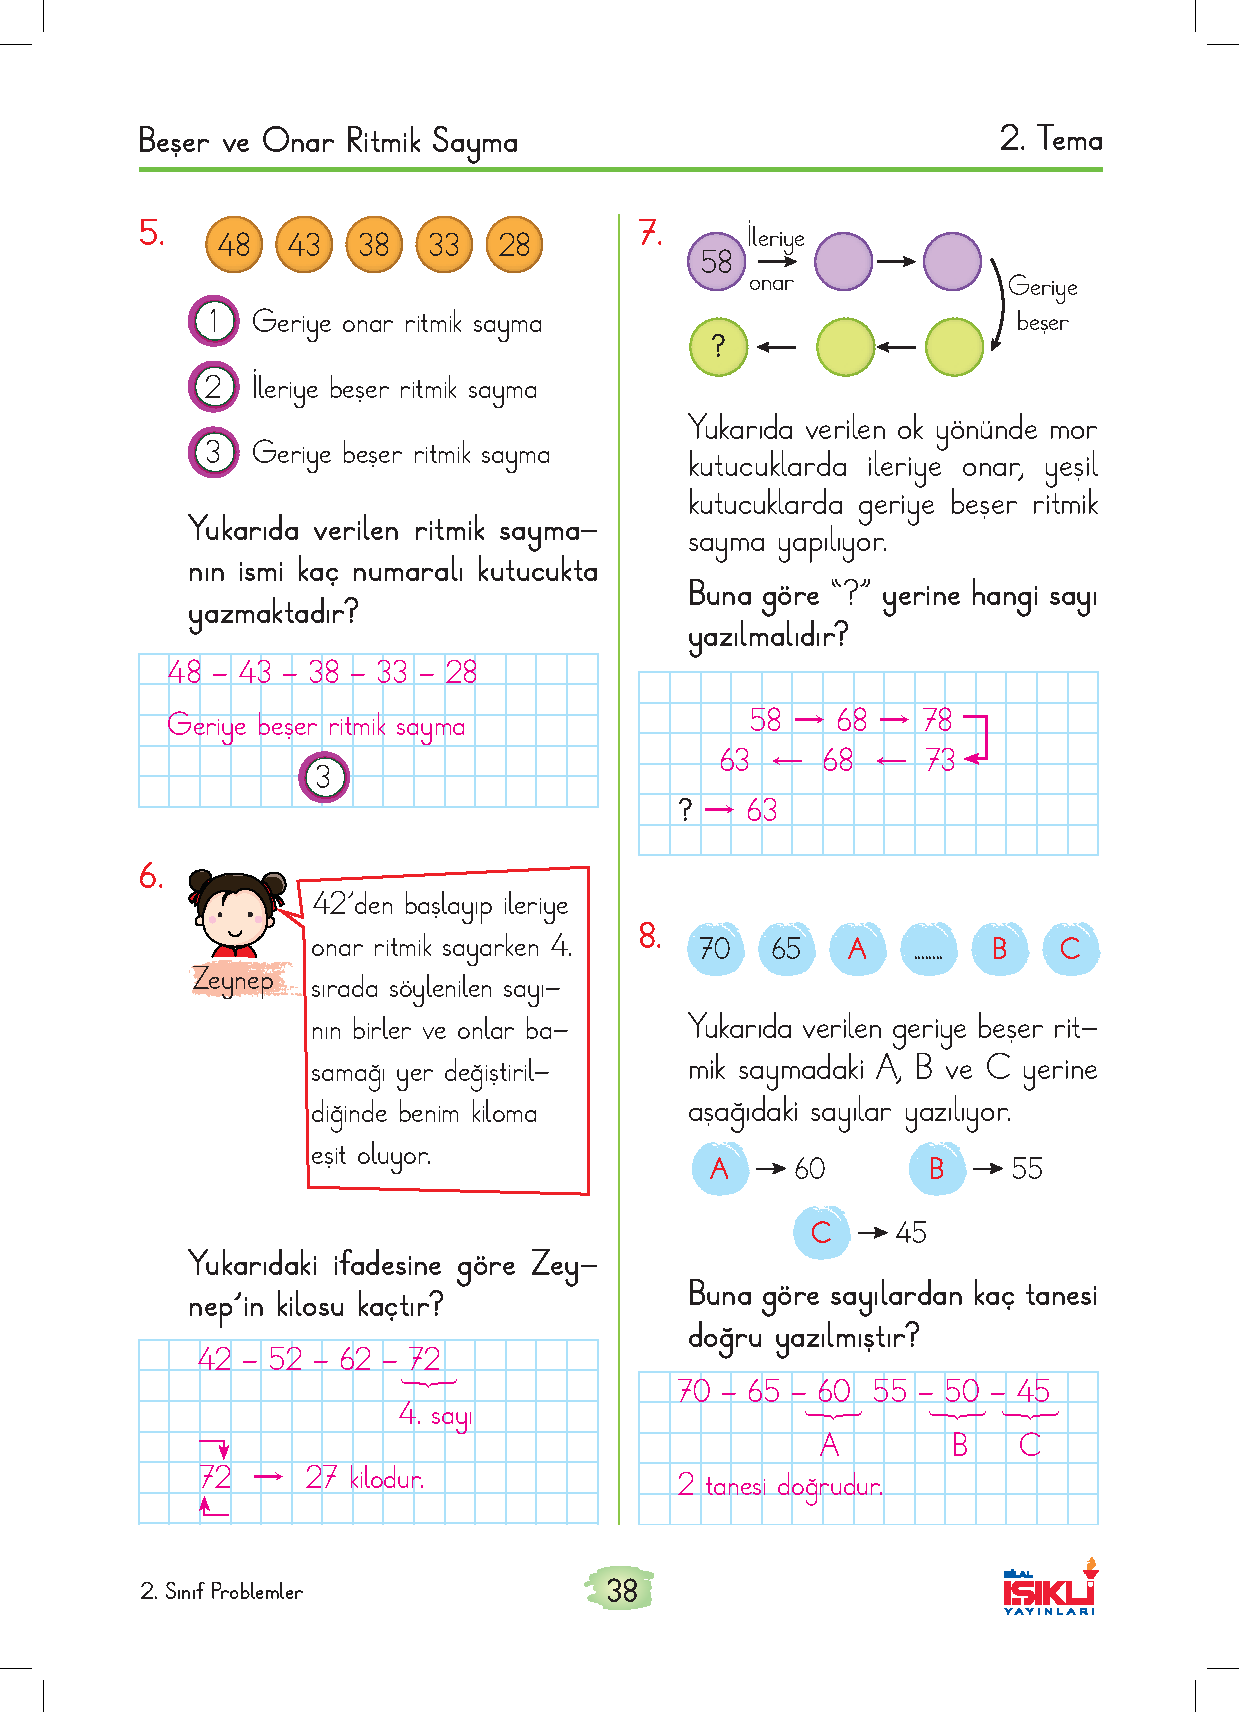 Beşer ve Onar Ritmik Sayma
2. Tema
5.
48 43 38 33 28
1 Geriye onar ritmik sayma
2 İleriye beşer ritmik sayma
3 Geriye beşer ritmik sayma
Yukarıda verilen ritmik sayma-
nın ismi kaç numaralı kutucukta
yazmaktadır?
48 - 43 - 38 - 33 - 28
Geriye beşer ritmik sayma
3
6.
Zeynep
42'den başlayıp ileriye
onar ritmik sayarken 4.
sırada söylenilen sayı-
nın birler ve onlar ba-
samağı yer değiştiril-
diğinde benim kiloma
eşit oluyor.
Yukarıdaki ifadesine göre Zey-
nep'in kilosu kaçtır?
42 - 52 - 62 - 72
4. sayı
72 → 27 kilodur.
7.
İleriye
58 → →
onar
Geriye
beşer
? ← ←
Yukarıda verilen ok yönünde mor
kutucuklarda ileriye onar, yeşil
kutucuklarda geriye beşer ritmik
sayma yapılıyor.
Buna göre "?" yerine hangi sayı
yazılmalıdır?
58 → 68 → 78
63 ← 68 ← 73
? → 63
8.
70 65 A ........ B C
Yukarıda verilen geriye beşer rit-
mik saymadaki A, B ve C yerine
aşağıdaki sayılar yazılıyor.
A → 60 B → 55
C → 45
Buna göre sayılardan kaç tanesi
doğru yazılmıştır?
70 - 65 - 60 55 - 50 - 45
A B C
2 tanesi doğrudur.
2. Sınıf Problemler
38
BİLAL
IŞIKLI
YAYINLARI